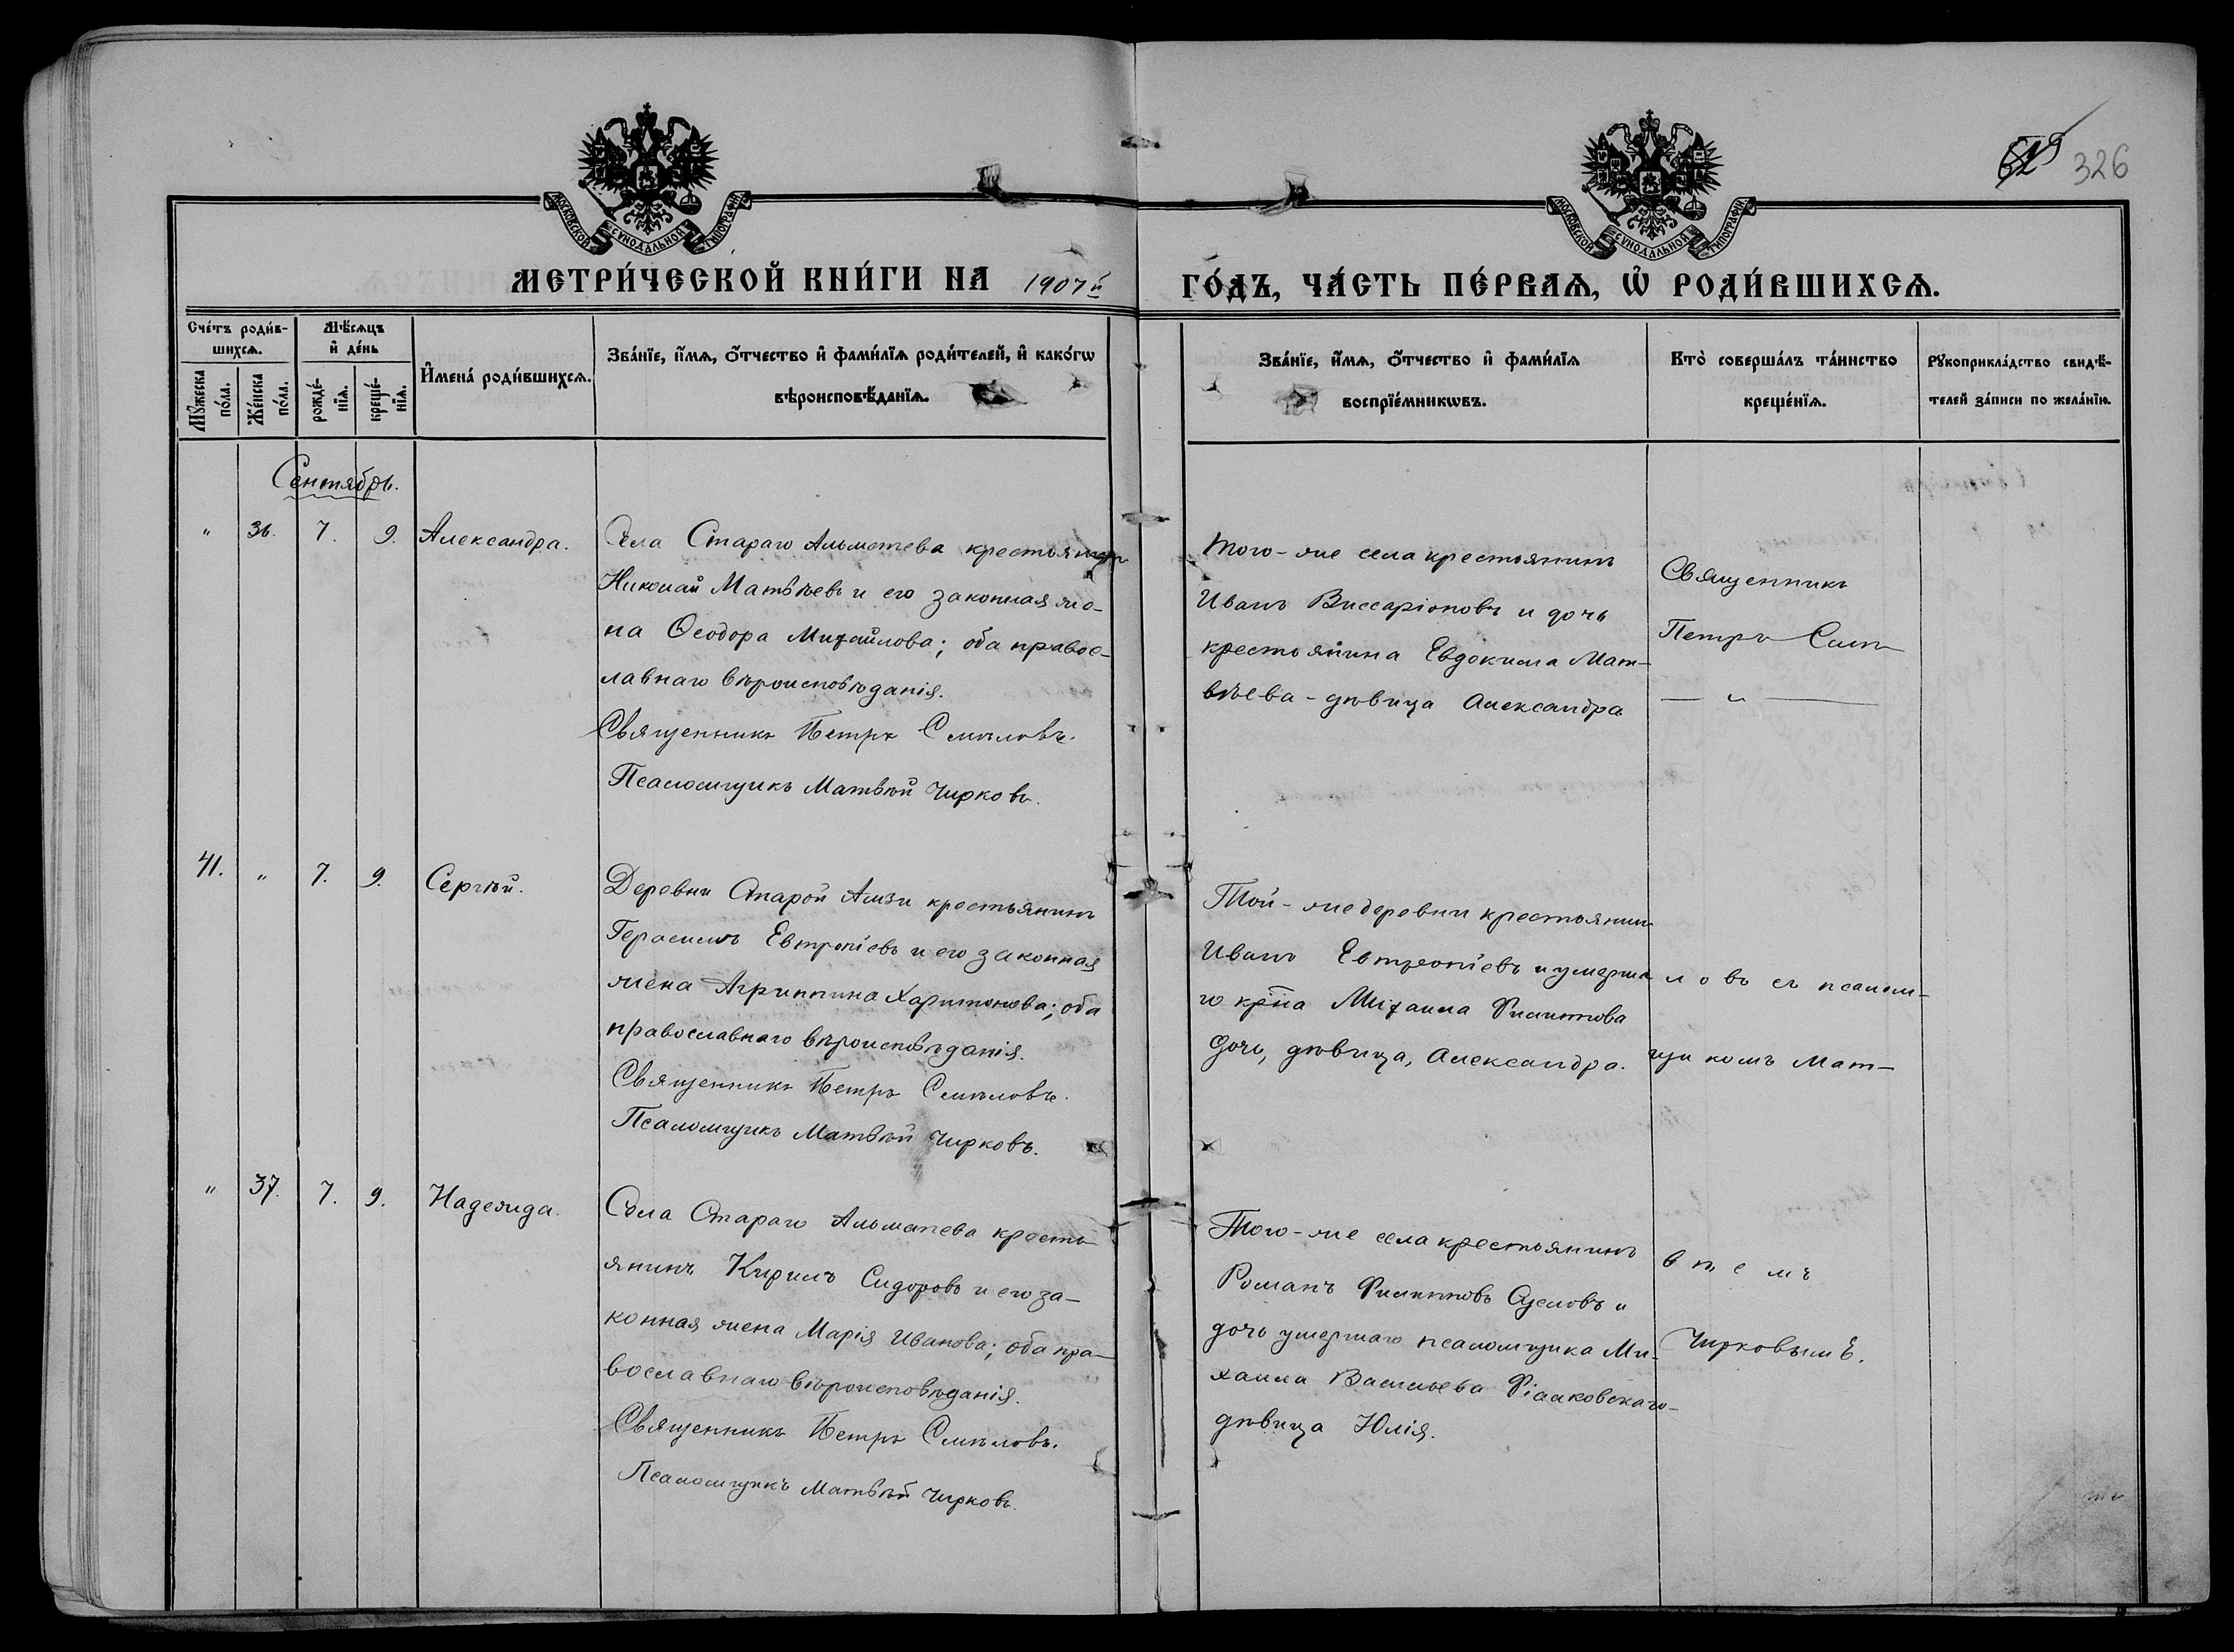 326
МОСКОВСКОЙ СУНОДАЛЬНОЙ ТИПОГРАФІИ
МОСКОВСКОЙ СУНОДАЛЬНОЙ ТИПОГРАФІИ
МЕТРИ́ЧЕСКОЙ КНИ́ГИ НА 1907й ГО́ДЪ, ЧА́СТЬ ПЕ́РВАѦ, Ѡ҆ РОДИ́ВШИХСѦ.
Сче́тъ роди́в-
шихсѧ.
Мꙋ́жеска по́ла.
Же́нска по́ла.
Мѣ́сѧцъ и҆ де́нь
рожде́-нїѧ.
креще́-нїѧ.
И҆мена̀ роди́вшихсѧ.
Зва́нїе, и҆́мѧ, ѻ҆́тчество и҆ фами́лїѧ роди́телей, и҆ како́гѡ
вѣроисповѣ́данїѧ.
Зва́нїе, и҆́мѧ, ѻ҆́тчество и҆ фами́лїѧ
воспрїе́мникѡвъ.
Кто̀ соверша́лъ та́инство
креще́нїѧ.
Рꙋкоприкла́дство свидѣ́-
телей за́писи по жела́нїю.
Сентябрь.
" 36. 7. 9. Александра.
Села Стараго Альметева крестьянинъ
Николай Матвѣевъ и его законная же-
на Ѳеодора Михайлова; оба правос-
лавнаго вѣроисповѣданія.
Священникъ Петръ Смѣловъ.
Псаломщикъ Матвѣй Чирковъ.
Того-же села крестьянинъ
Иванъ Виссаріоновъ и дочь
крестьянина Евдокима Мат-
вѣева - дѣвица Александра
Священникъ
Петръ Смѣ
— " —
41. " 7. 9. Сергѣй.
Деревни Старой Амзи крестьянинъ
Герасимъ Евтропіевъ и его законная
жена Агриппина Харитонова; оба
православнаго вѣроисповѣданія.
Священникъ Петръ Смѣловъ.
Псаломщикъ Матвѣй Чирковъ.
Той-же деревни крестьянинъ
Иванъ Евтропіевъ и умерша
го кр̃на Михаила Филиппова
дочь, дѣвица, Александра.
ловъ съ псалом-
щикомъ Мат-
" 37. 7. 9. Надежда.
Села Стараго Альметева кресть
янинъ Кирилъ Сидоровъ и его за-
конная жена Марія Иванова; оба пра-
вославнаго вѣроисповѣданія.
Священникъ Петръ Смѣловъ.
Псаломщикъ Матвѣй Чирковъ.
Того-же села крестьянинъ
Романъ Филипповъ и
дочь умершаго псаломщика Ми-
хаила Васильева Фіалковскаго-
дѣвица Юлія.
вѣемъ
Чирковымъ.